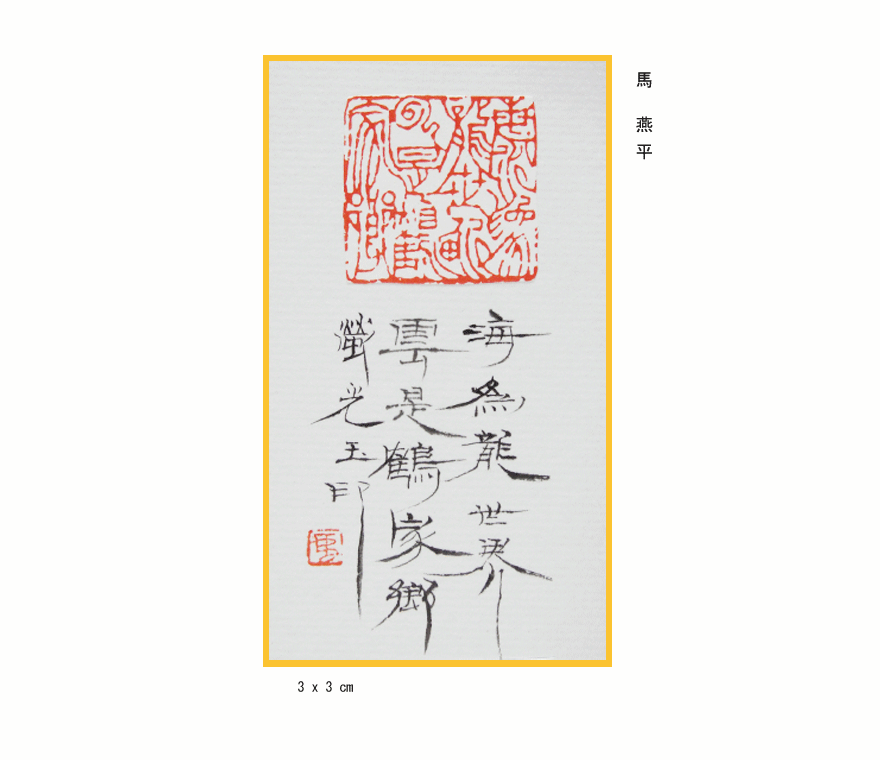 馬 燕平
海為龍世界
雲是鶴家鄉
螢光玉印
3 x 3 cm